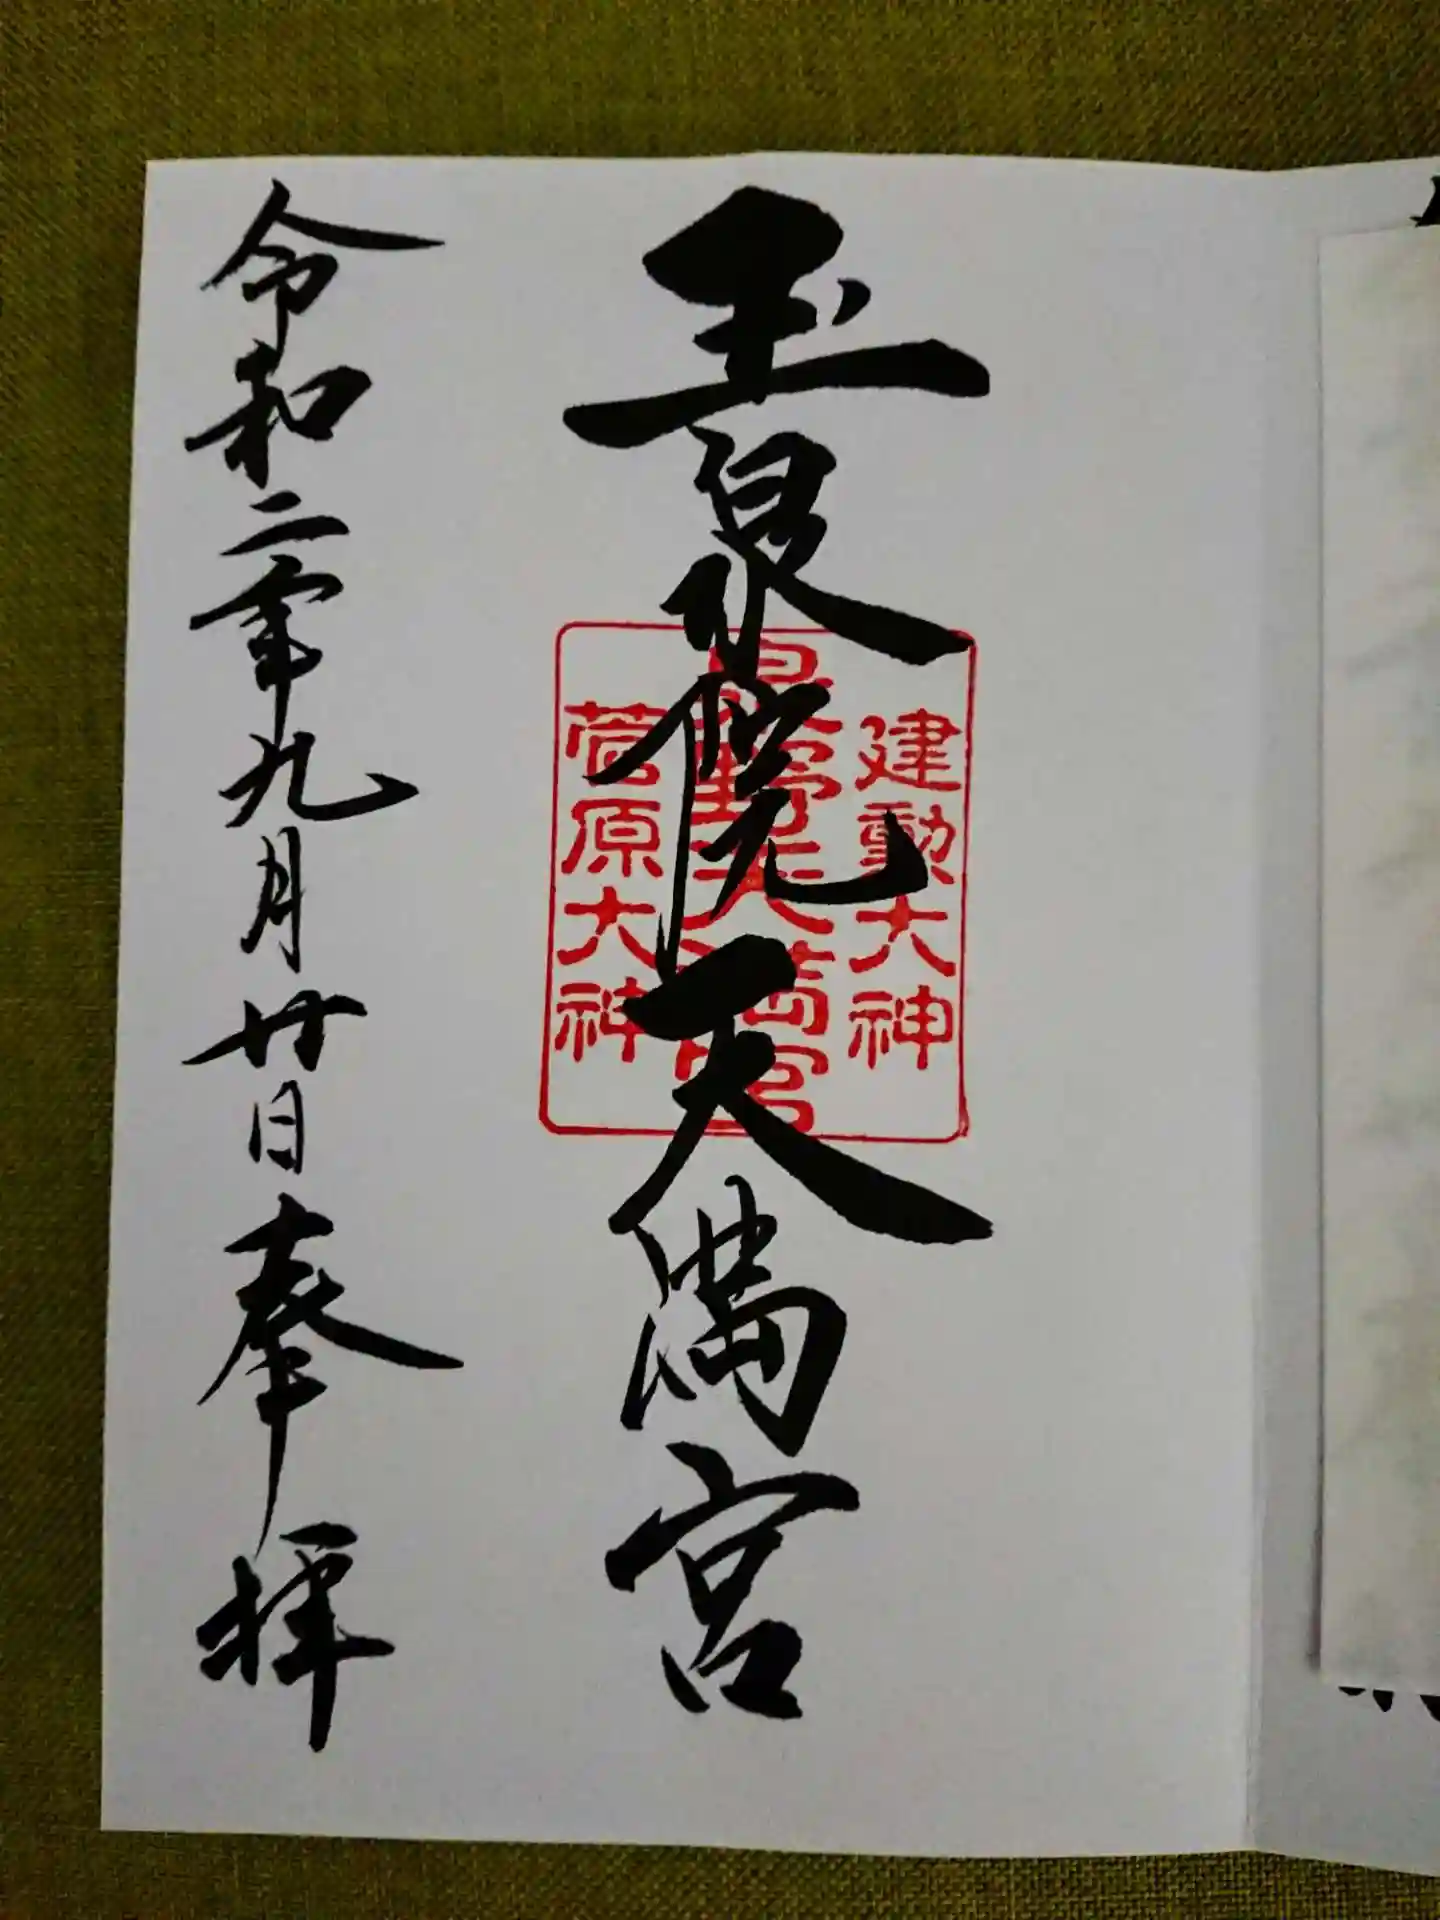 玉泉院天満宮
建勲大神
泉野天満宮
菅原大神
令和二年九月廿日奉拝